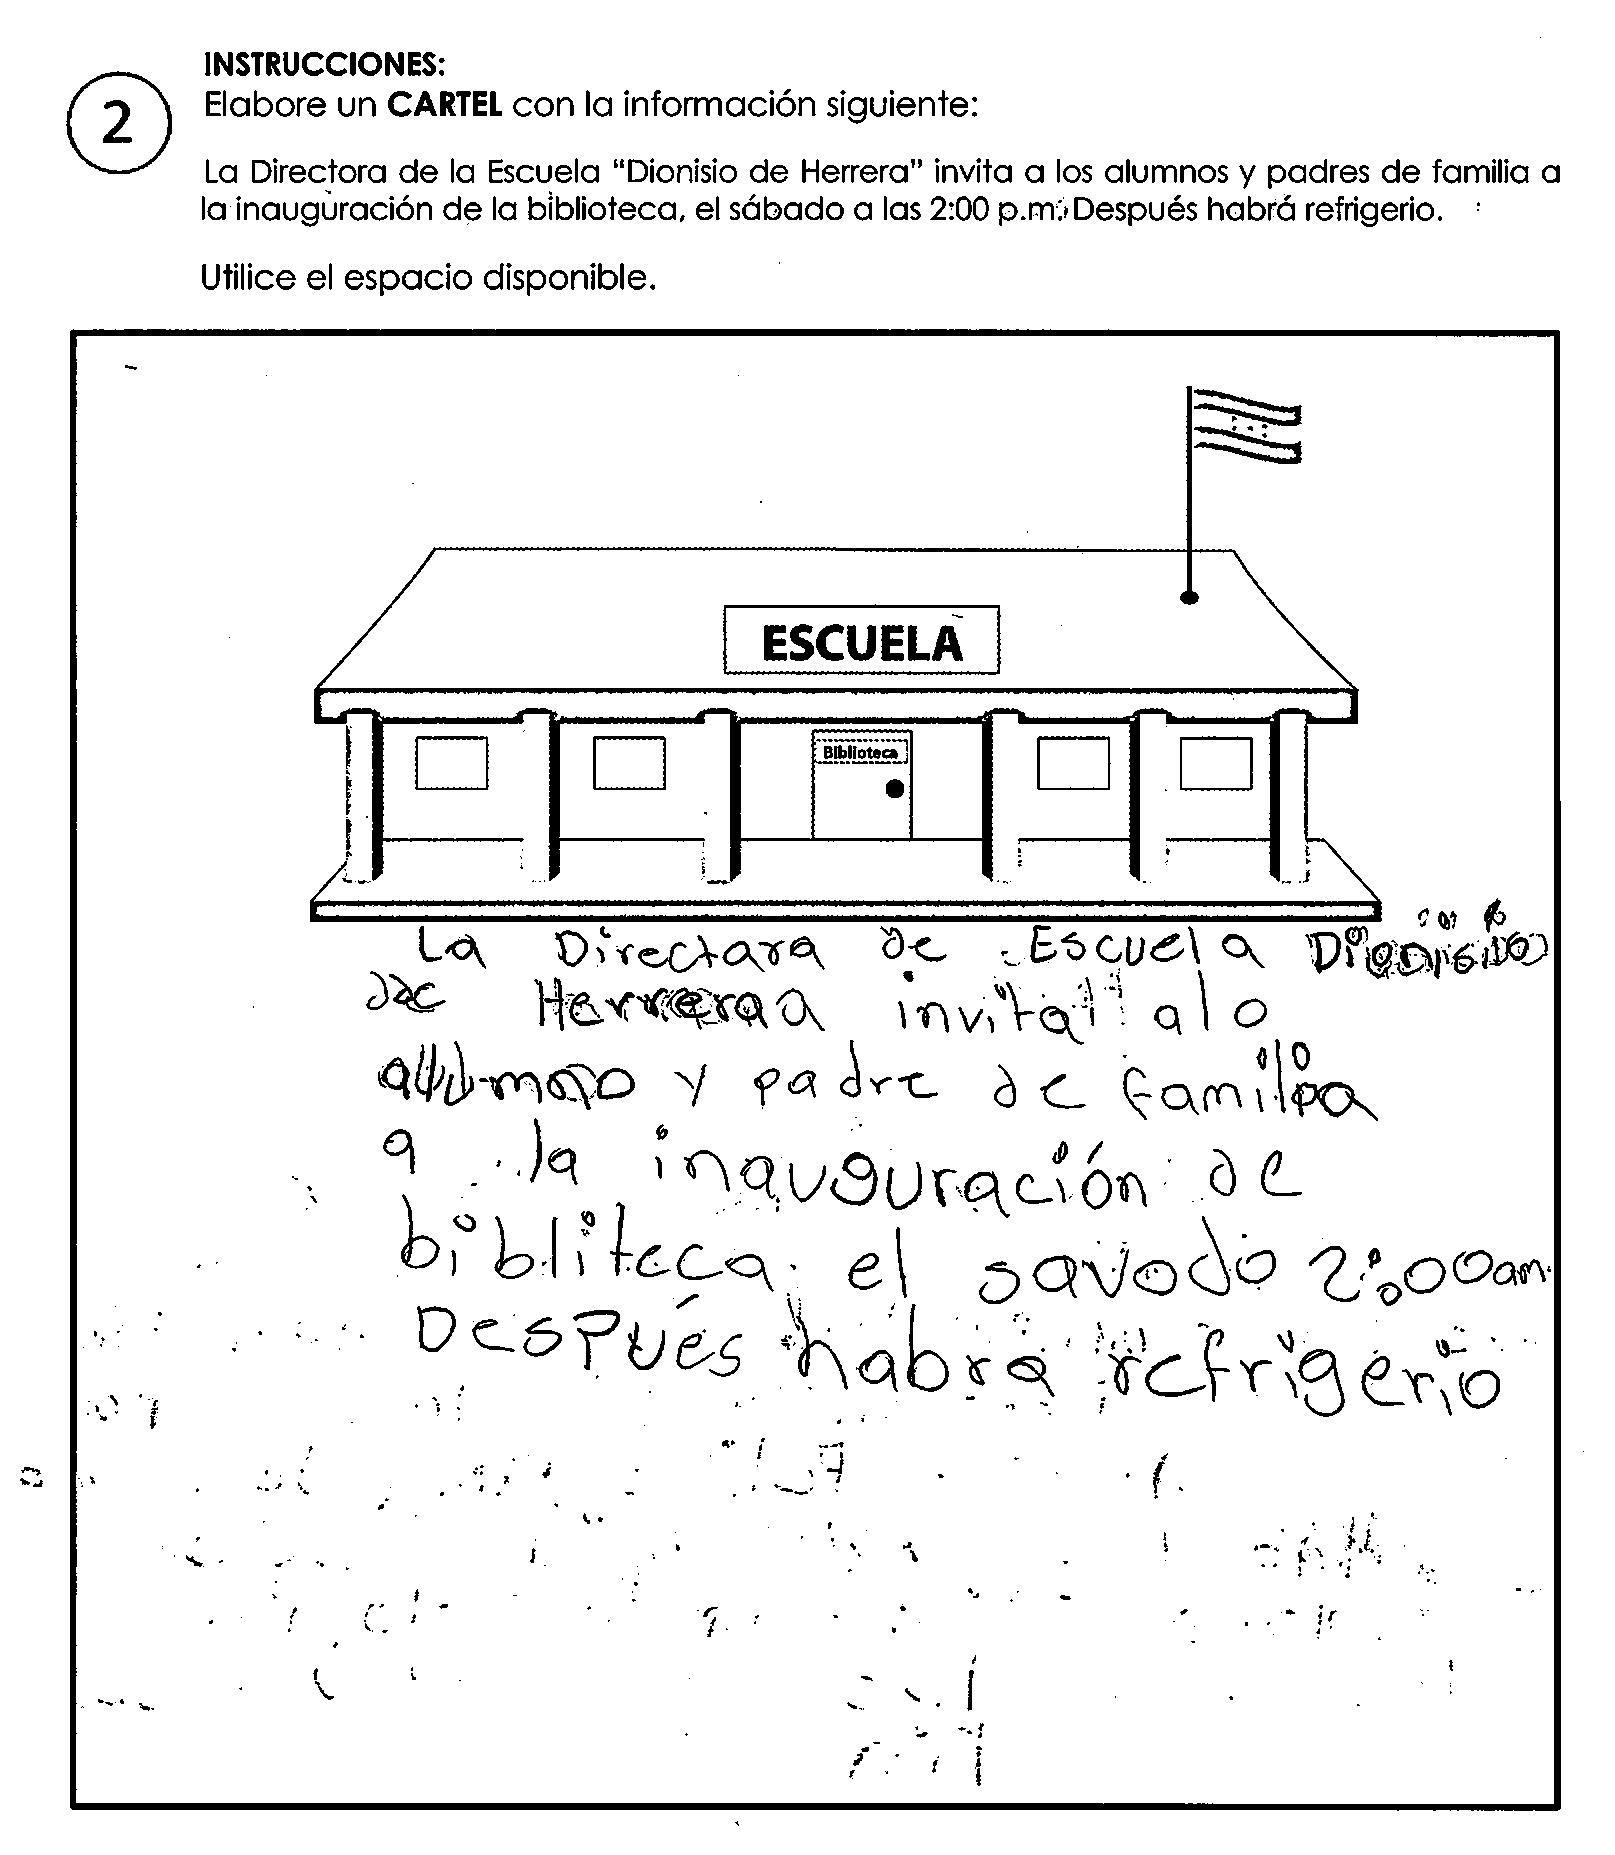 INSTRUCCIONES:
2
Elabore un CARTEL con la información siguiente:
La Directora de la Escuela "Dionisio de Herrera" invita a los alumnos y padres de familia a
la inauguración de la biblioteca, el sábado a las 2:00 p.m. Después habrá refrigerio.
Utilice el espacio disponible.
ESCUELA
Biblioteca
La Directara de Escuela Dionisio
de Herrera invita a lo
alumno y padre de familia
a la inauguración de
bibliteca el savodo 2:00am
Después habra refrigerio